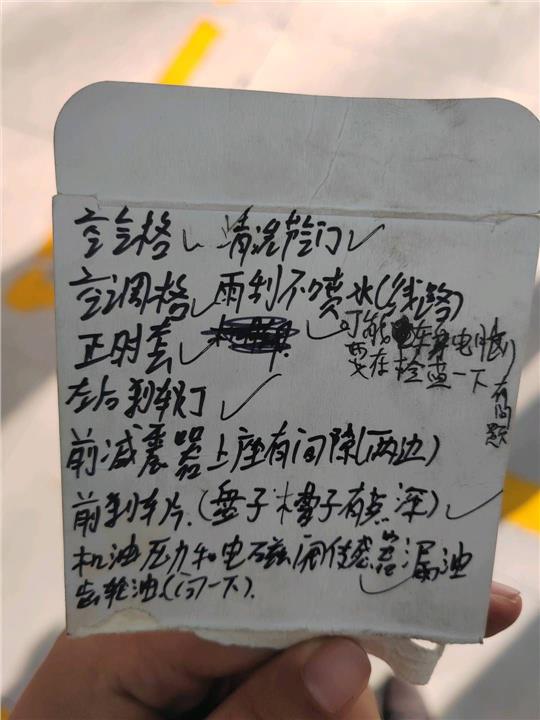 空气格✓ 清洗节门✓
空调格✓ 雨刮不喷水(线路)
正时套✓ 可能车身电脑有问题
要在检查一下
左后刹车灯✓
前减震器上座有间隙(两边)
前刹车片.(盘子槽子有点深)✓
机油压力和电磁阀传感器漏油
齿轮油(问一下).